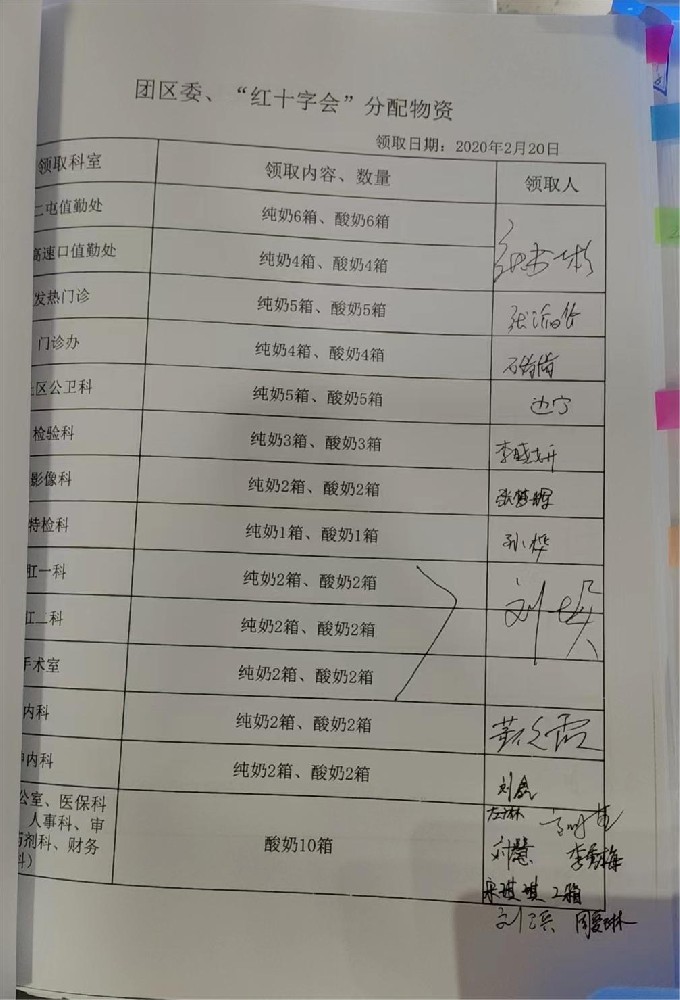 团区委、“红十字会”分配物资
领取日期：2020年2月20日
领取科室 领取内容、数量 领取人
二屯值勤处 纯奶6箱、酸奶6箱
高速口值勤处 纯奶4箱、酸奶4箱
发热门诊 纯奶5箱、酸奶5箱
门诊办 纯奶4箱、酸奶4箱
区公卫科 纯奶5箱、酸奶5箱 边宁
检验科 纯奶3箱、酸奶3箱
影像科 纯奶2箱、酸奶2箱 张梦辉
特检科 纯奶1箱、酸奶1箱 孙桦
肛一科 纯奶2箱、酸奶2箱
肛二科 纯奶2箱、酸奶2箱
手术室 纯奶2箱、酸奶2箱
内科 纯奶2箱、酸奶2箱
内科 纯奶2箱、酸奶2箱 刘鑫
公室、医保科
人事科、审
药剂科、财务
科） 酸奶10箱
刘慧 李春梅
刘滨 周爱琳